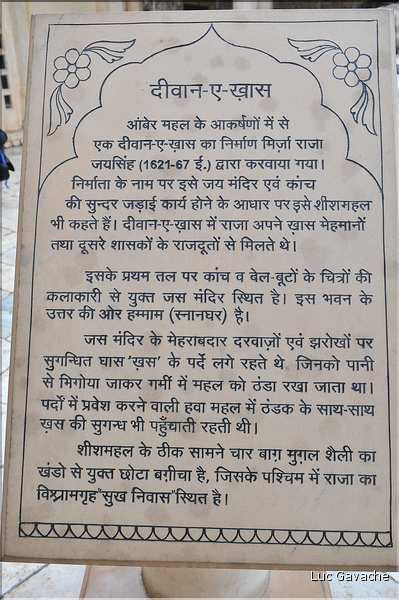 दीवान-ए-ख़ास
आंबेर महल के आकर्षणों में से
एक दीवान-ए-ख़ास का निर्माण मिर्ज़ा राजा
जयसिंह (1621-67 ई.) द्वारा करवाया गया।
निर्माता के नाम पर इसे जय मंदिर एवं कांच
की सुन्दर जड़ाई कार्य होने के आधार पर इसे शीशमहल
भी कहते हैं। दीवान-ए-ख़ास में राजा अपने ख़ास मेहमानों
तथा दूसरे शासकों के राजदूतों से मिलते थे।
इसके प्रथम तल पर कांच व बेल-बूटों के चित्रों की
कलाकारी से युक्त जस मंदिर स्थित है। इस भवन के
उत्तर की ओर हम्माम (स्नानघर) है।
जस मंदिर के मेहराबदार दरवाज़ों एवं झरोखों पर
सुगन्धित घास 'ख़स' के पर्दे लगे रहते थे, जिनको पानी
से भिगोया जाकर गर्मी में महल को ठंडा रखा जाता था।
पर्दों में प्रवेश करने वाली हवा महल में ठंडक के साथ-साथ
ख़स की सुगन्ध भी पहुँचाती रहती थी।
शीशमहल के ठीक सामने चार बाग़ मुग़ल शैली का
खंडो से युक्त छोटा बग़ीचा है, जिसके पश्चिम में राजा का
विश्रामगृह "सुख निवास" स्थित है।
Luc Gavache